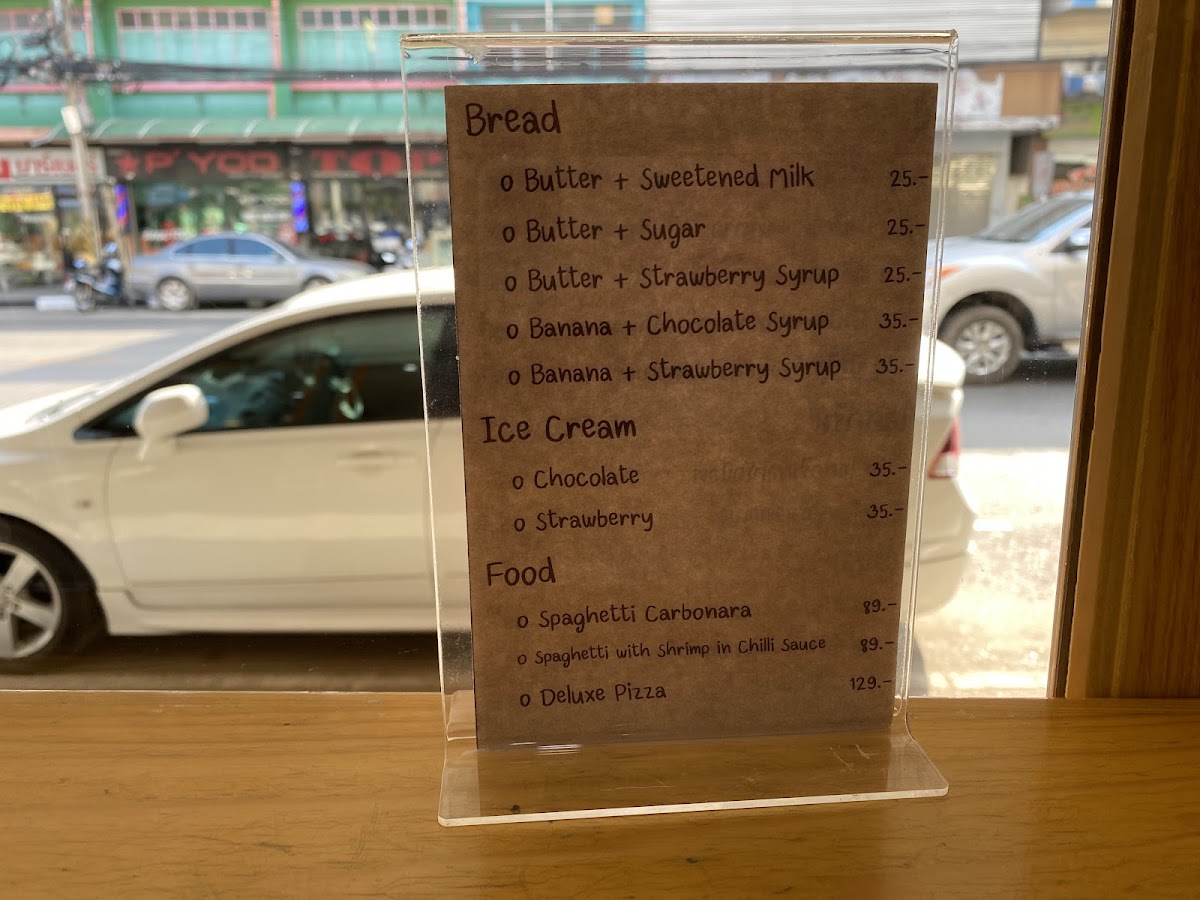 P'YOD
TOP
Bread
o Butter + Sweetened Milk 25.-
o Butter + Sugar 25.-
o Butter + Strawberry Syrup 25.-
o Banana + Chocolate Syrup 35.-
o Banana + Strawberry Syrup 35.-
Ice Cream
o Chocolate 35.-
o Strawberry 35.-
Food
o Spaghetti Carbonara 89.-
o Spaghetti with Shrimp in Chilli Sauce 89.-
o Deluxe Pizza 129.-